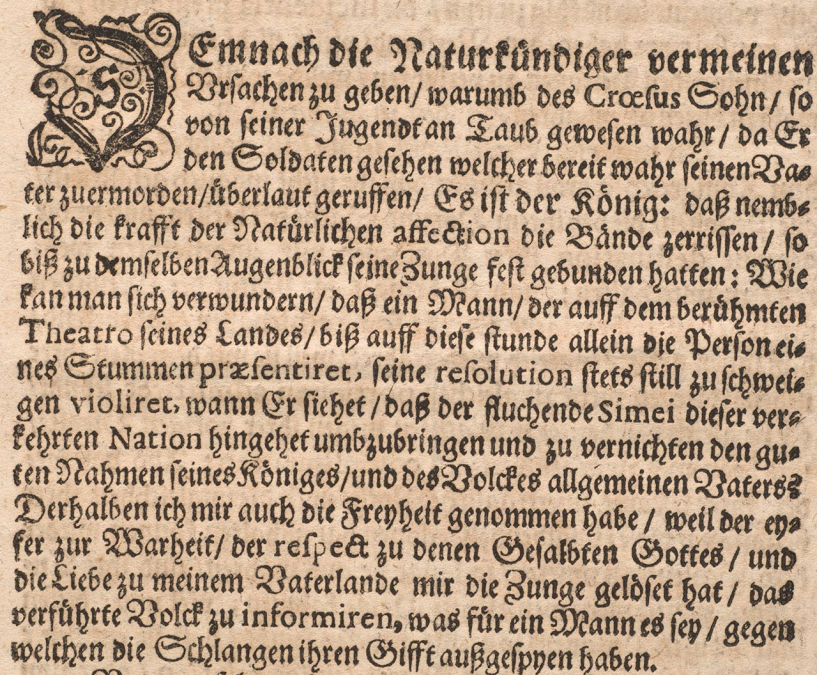 DEmnach die Naturkündiger vermeinen
Vrsachen zu geben/ warumb des Crœsus Sohn/ so
von seiner Jugendt an Taub gewesen wahr/ da Er
den Soldaten gesehen welcher bereit wahr seinen Va-
ter zuermorden/überlaut geruffen/ Es ist der König: daß nemb-
lich die krafft der Natürlichen affection die Bände zerrissen/ so
biß zu demselben Augenblick seine Zunge fest gebunden hatten: Wie
kan man sich verwundern/ daß ein Mann/ der auff dem berühmten
Theatro seines Landes/ biß auff diese stunde allein die Person ei-
nes Stummen præsentiret, seine resolution stets still zu schwei-
gen violiret, wann Er siehet/ daß der fluchende Simei dieser ver-
kehrten Nation hingehet umbzubringen und zu vernichten den gu-
ten Nahmen seines Königes/und des Volckes allgemeinen Vaters?
Derhalben ich mir auch die Freyheit genommen habe/ weil der ey-
fer zur Warheit/ der respect zu denen Gesalbten Gottes/ und
die Liebe zu meinem Vaterlande mir die Zunge gelöset hat/ das
verführte Volck zu informiren, was für ein Mann es sey/ gegen
welchen die Schlangen ihren Gifft außgespyen haben.